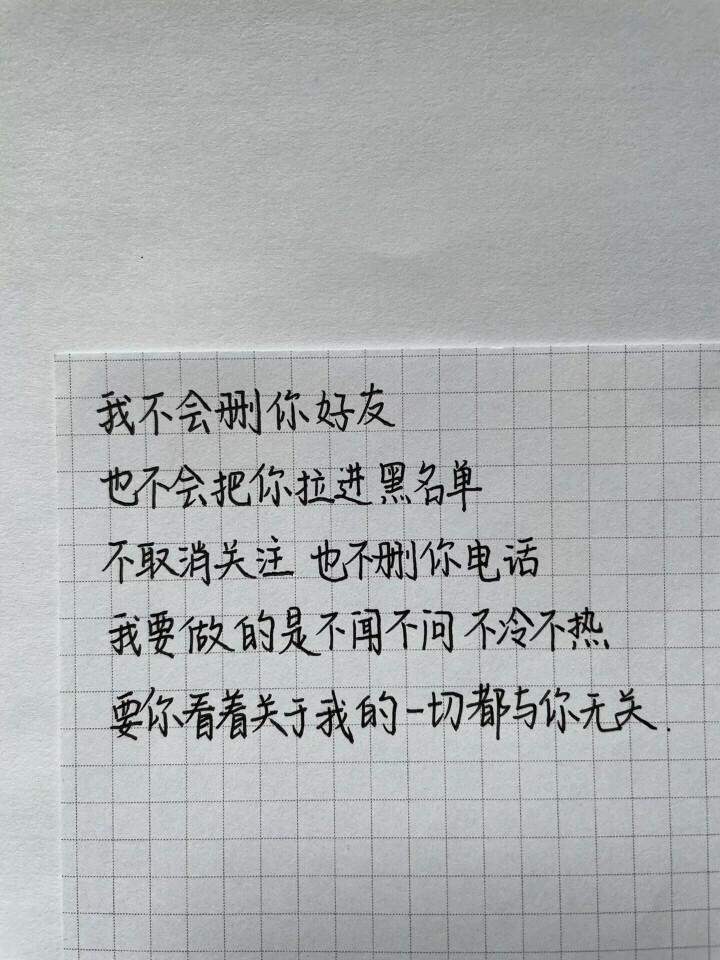 我不会删你好友
也不会把你拉进黑名单
不取消关注 也不删你电话
我要做的是不闻不问 不冷不热
要你看着关于我的一切都与你无关.